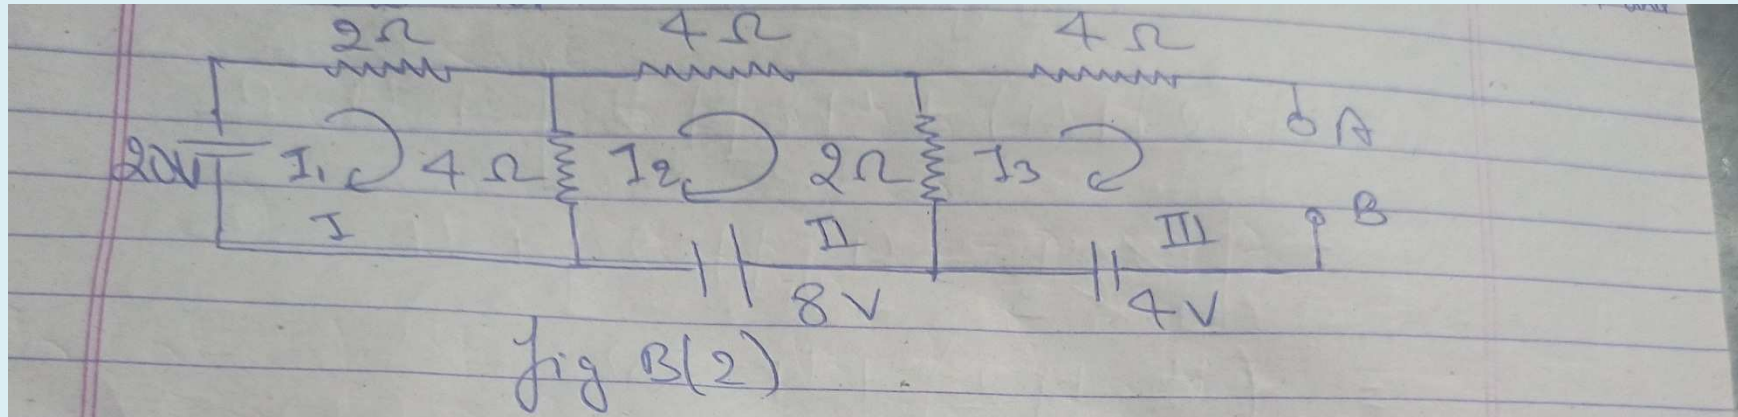 2Ω 4Ω 4Ω
20V I₁ 4Ω I₂ 2Ω I₃ A
I II III B
8V 4V
fig B(2)